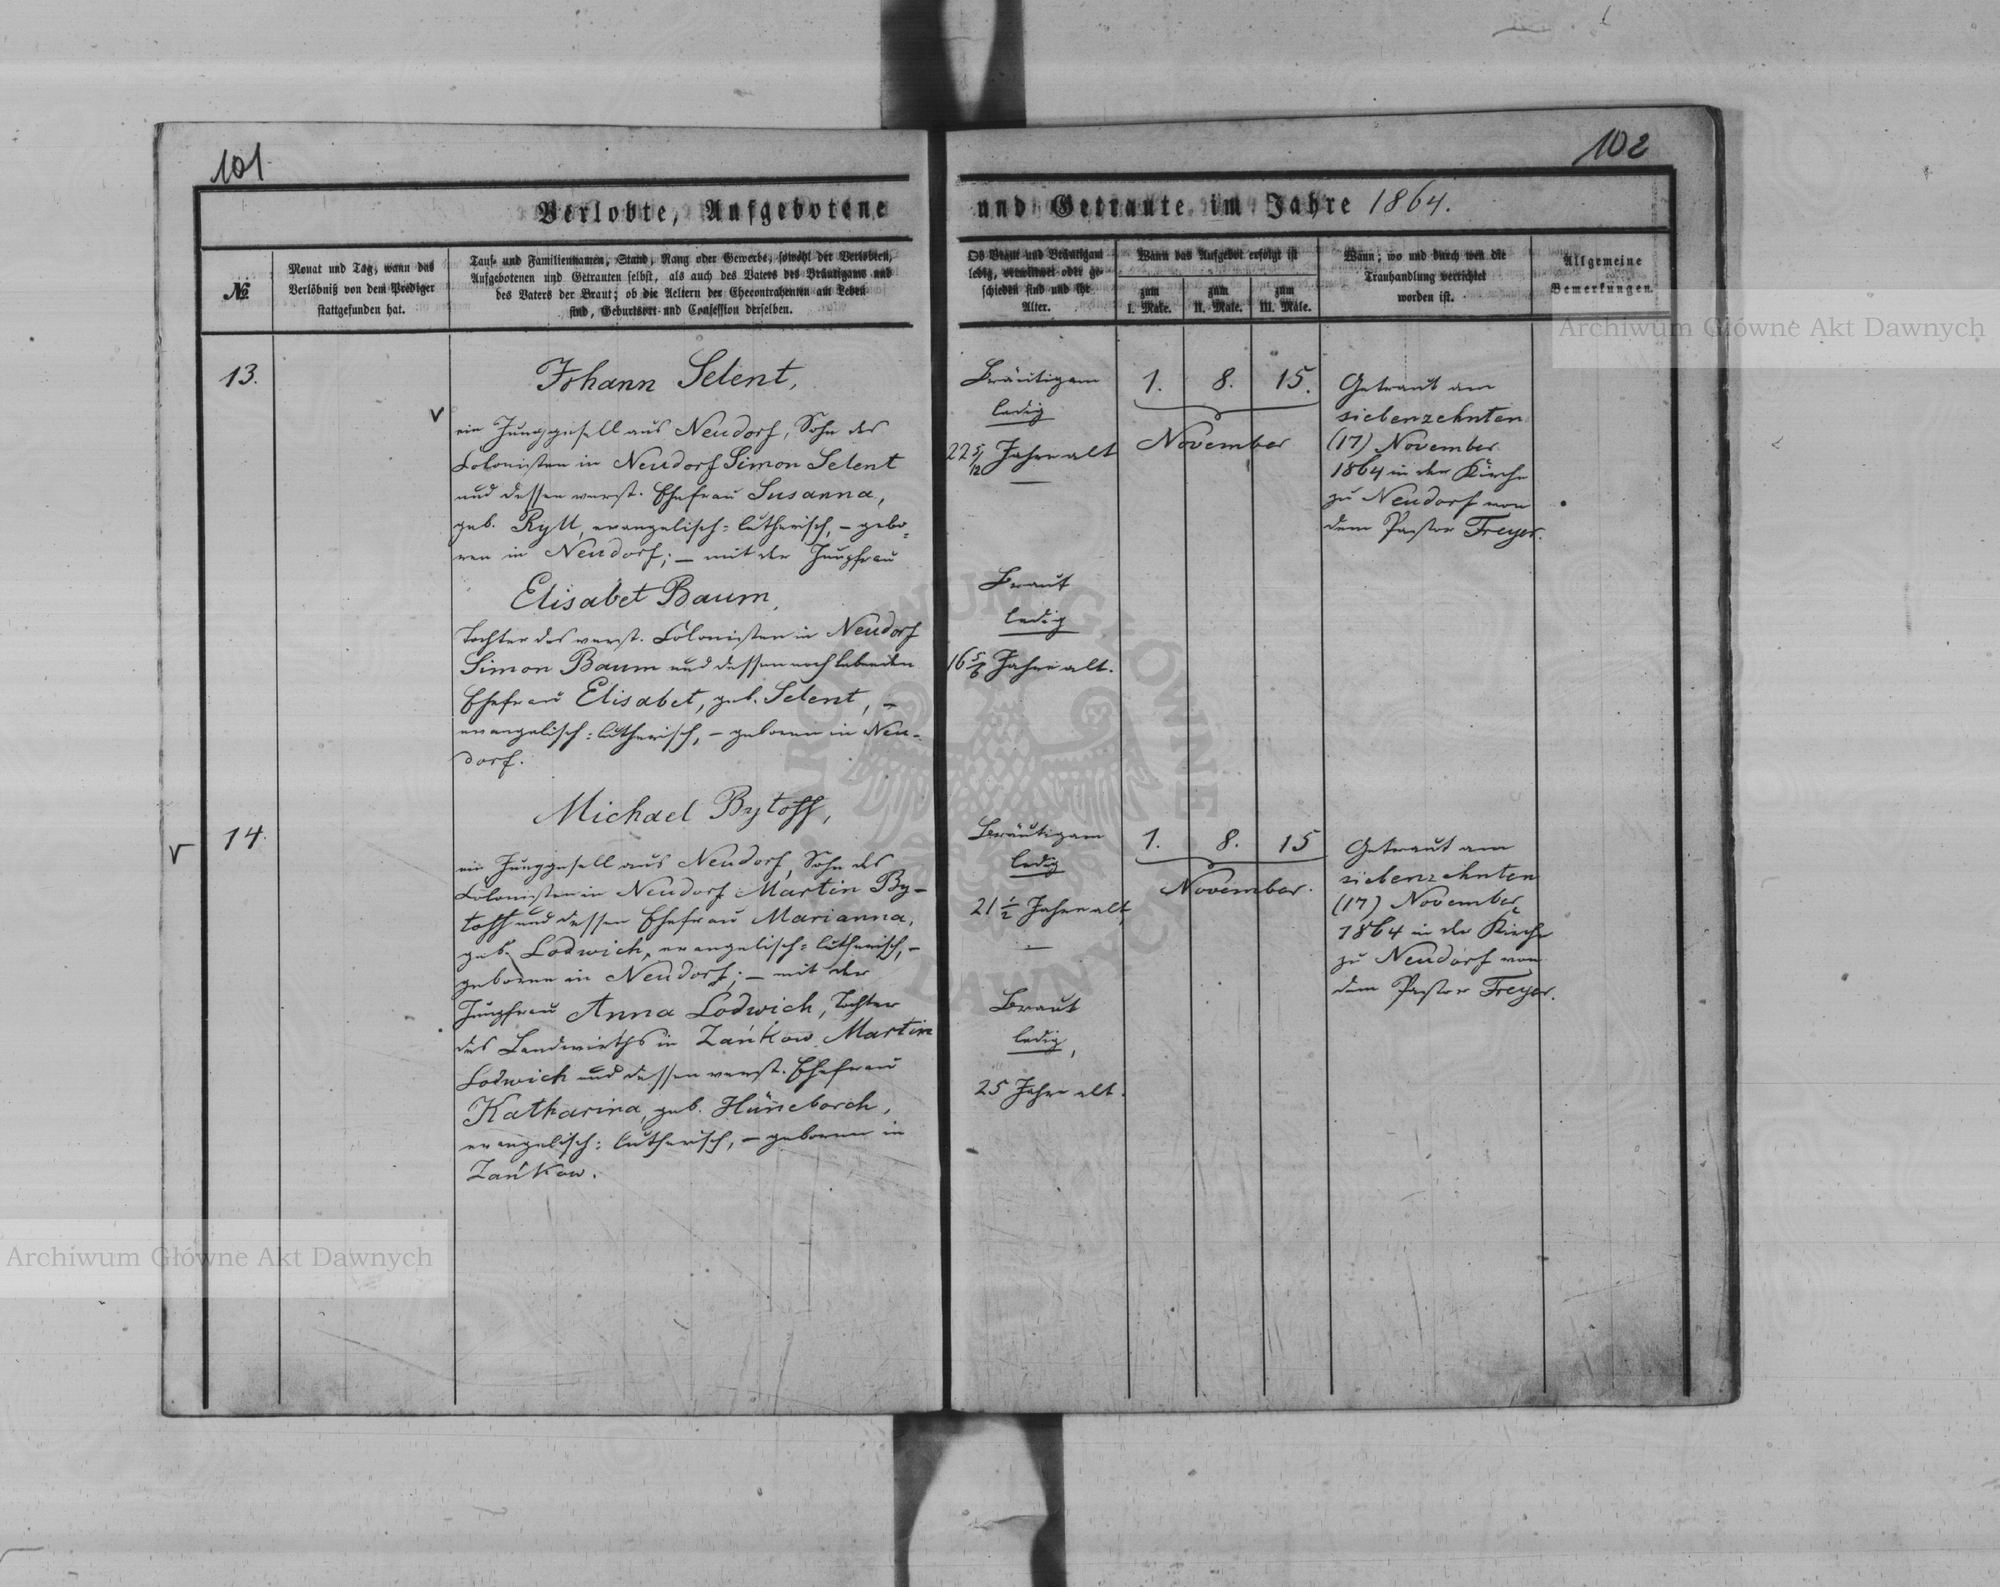 101
102
Verlobte, Aufgebotene und Getraute im Jahre 1864.
№
Monat und Tag, wann das
Verlöbniß von dem Prediger
stattgefunden hat.
Tauf- und Familiennamen, Stand, Rang oder Gewerbe, sowohl der Verlobten,
Aufgebotenen und Getrauten selbst, als auch des Vaters des Bräutigams und
des Vaters der Braut; ob die Aeltern der Ehecontrahenten am Leben
sind, Geburtsort und Confession derselben.
Ob Braut und Bräutigam
ledig, verwittwet oder ge-
schieden sind und ihr
Alter.
Wann das Aufgebot erfolgt ist
zum
I. Male.
zum
II. Male.
zum
III. Male.
Wann, wo und durch wen die
Trauhandlung verrichtet
worden ist.
Allgemeine
Bemerkungen.
13.
Johann Selent,
ein Junggesell aus Neudorf, Sohn des
Colonisten in Neudorf Simon Selent
und dessen verst. Ehefrau Susanna,
geb. Rytt, evangelisch=lutherisch, – gebo=
ren in Neudorf; – mit der Jungfrau
Elisabet Baum,
Tochter des verst. Colonisten in Neudorf
Simon Baum und dessen noch lebenden
Ehefrau Elisabet, geb. Selent, –
evangelisch=lutherisch, – geboren in Neu-
dorf.
Bräutigam
ledig
22 5/12 Jahre alt
Braut
ledig
16 5/6 Jahre alt.
1. 8. 15.
November
Getraut am
siebenzehnten
(17) November
1864 in der Kirche
zu Neudorf von
dem Pastor Freyer.
14.
Michael Bytoff,
ein Junggesell aus Neudorf, Sohn des
Colonisten in Neudorf Martin By-
toff und dessen Ehefrau Marianna,
geb. Lodwich, evangelisch=lutherisch, –
geboren in Neudorf; – mit der
Jungfrau Anna Lodwich, Tochter
des Landwirths in Zańkow Martin
Lodwich und dessen verst. Ehefrau
Katharina, geb. Hüneborch,
evangelisch=lutherisch, – geboren in
Zańkow.
Bräutigam
ledig
21 1/2 Jahre alt,
Braut
ledig,
25 Jahre alt.
1. 8. 15
November.
Getraut am
siebenzehnten
(17) November
1864 in der Kirche
zu Neudorf von
dem Pastor Freyer.
Archiwum Główne Akt Dawnych
Archiwum Główne Akt Dawnych